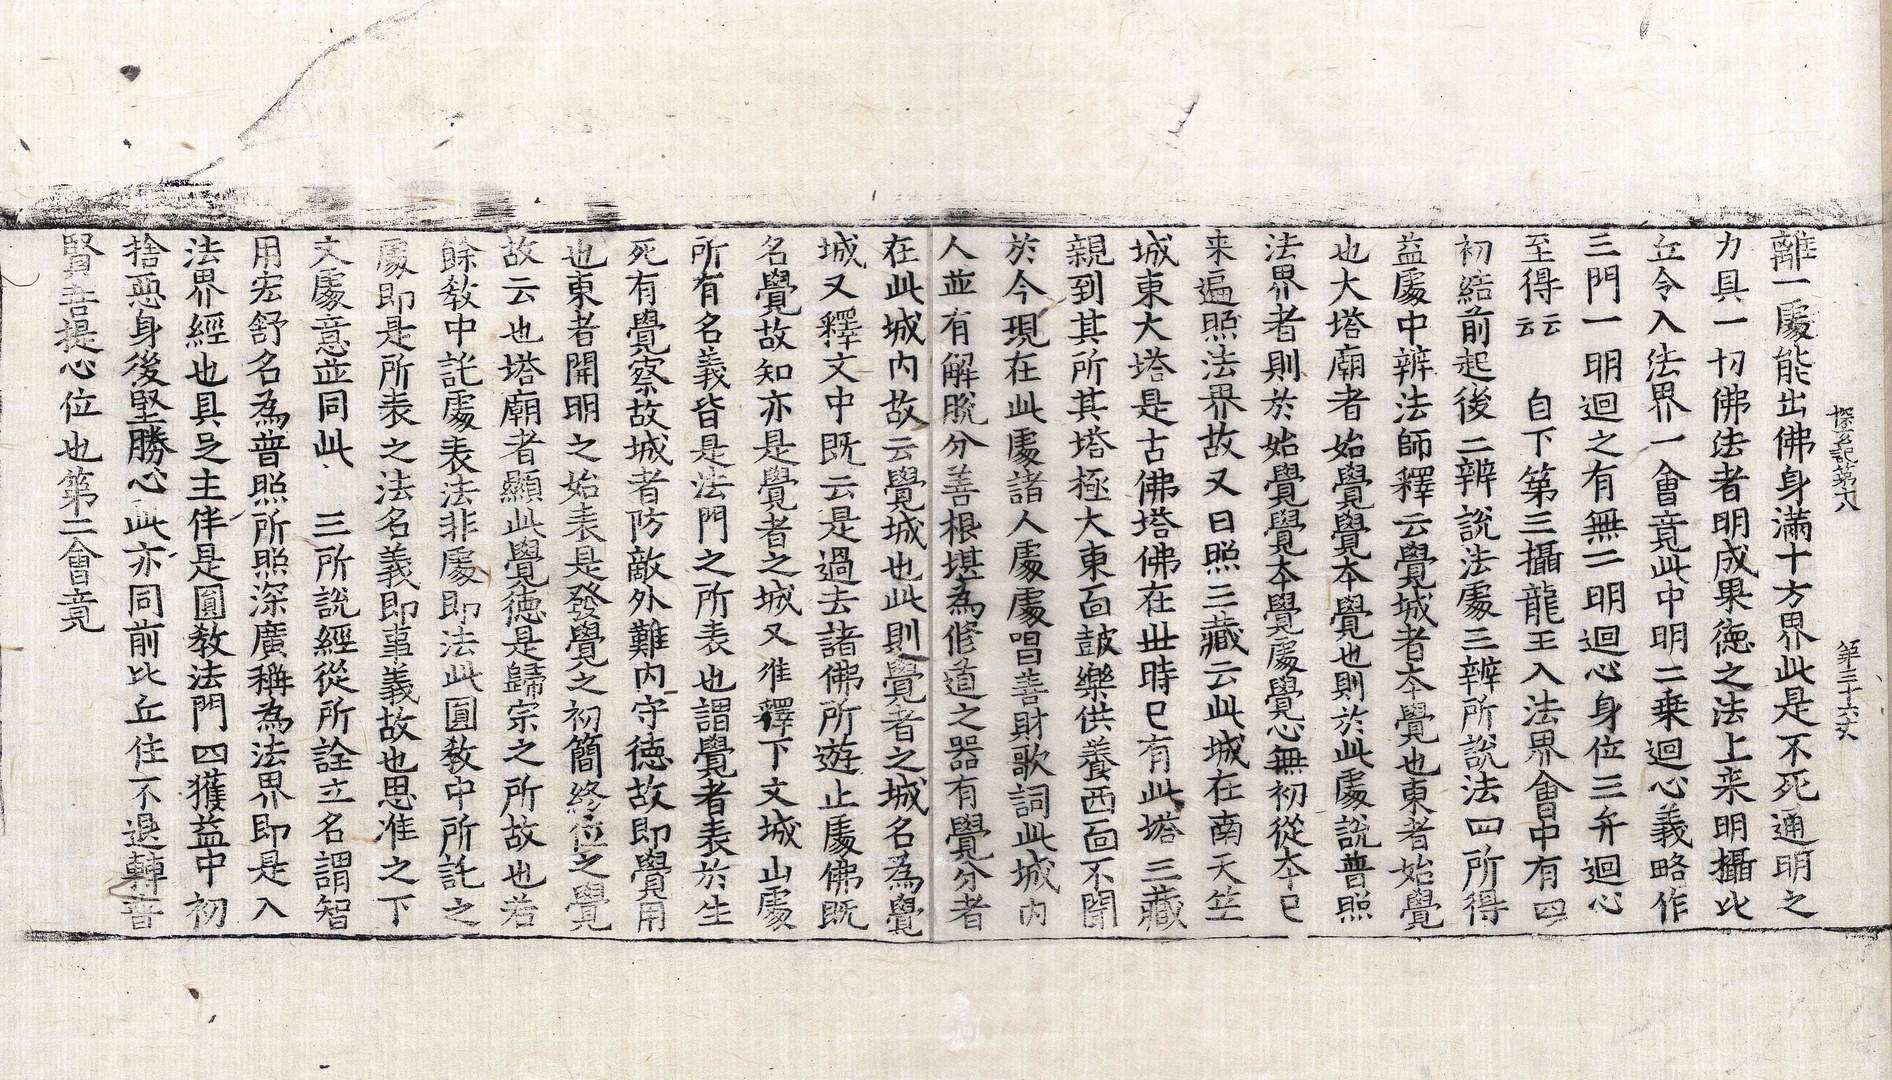 探玄記第十八　第三十六丈
離一處能出佛身滿十方界此是不死通明之
力具一切佛法者明成果德之法上来明攝比
丘令入法界一會竟此中明二乗迴心義略作
三門一明迴之有無二明迴心身位三弁迴心
至得云云　自下第三攝龍王入法界會中有四
初結前起後二辨說法處三辨所說法四所得
益處中辨法師釋云覺城者本覺也東者始覺
也大塔廟者始覺覺本覺也則於此處說普照
法界者則於始覺覺本覺處覺心無初從本已
来遍照法界故又日照三藏云此城在南天竺
城東大塔是古佛塔佛在世時已有此塔三藏
親到其所其塔極大東面鼓樂供養西面不聞
於今現在此處諸人處處唱善財歌詞此城内
人並有解脫分善根堪為修道之器有覺分者
在此城内故云覺城也此則覺者之城名為覺
城又釋文中既云是過去諸佛所遊止處佛既
名覺故知亦是覺者之城又准釋下文城山處
所有名義皆是法門之所表也謂覺者表於生
死有覺察故城者防敵外難内守德故即覺用
也東者開明之始表是發覺之初簡終位之覺
故云也塔廟者顯此覺德是歸宗之所故也若
餘教中託處表法非處即法此圓教中所託之
處即是所表之法名義即事義故也思准之下
文處意並同此　三所說經從所詮立名謂智
用宏舒名為普照所照深廣稱為法界即是入
法界經也具足主伴是圓教法門四獲益中初
捨惡身後堅勝心此亦同前比丘住不退轉普
賢菩提心位也第二會竟